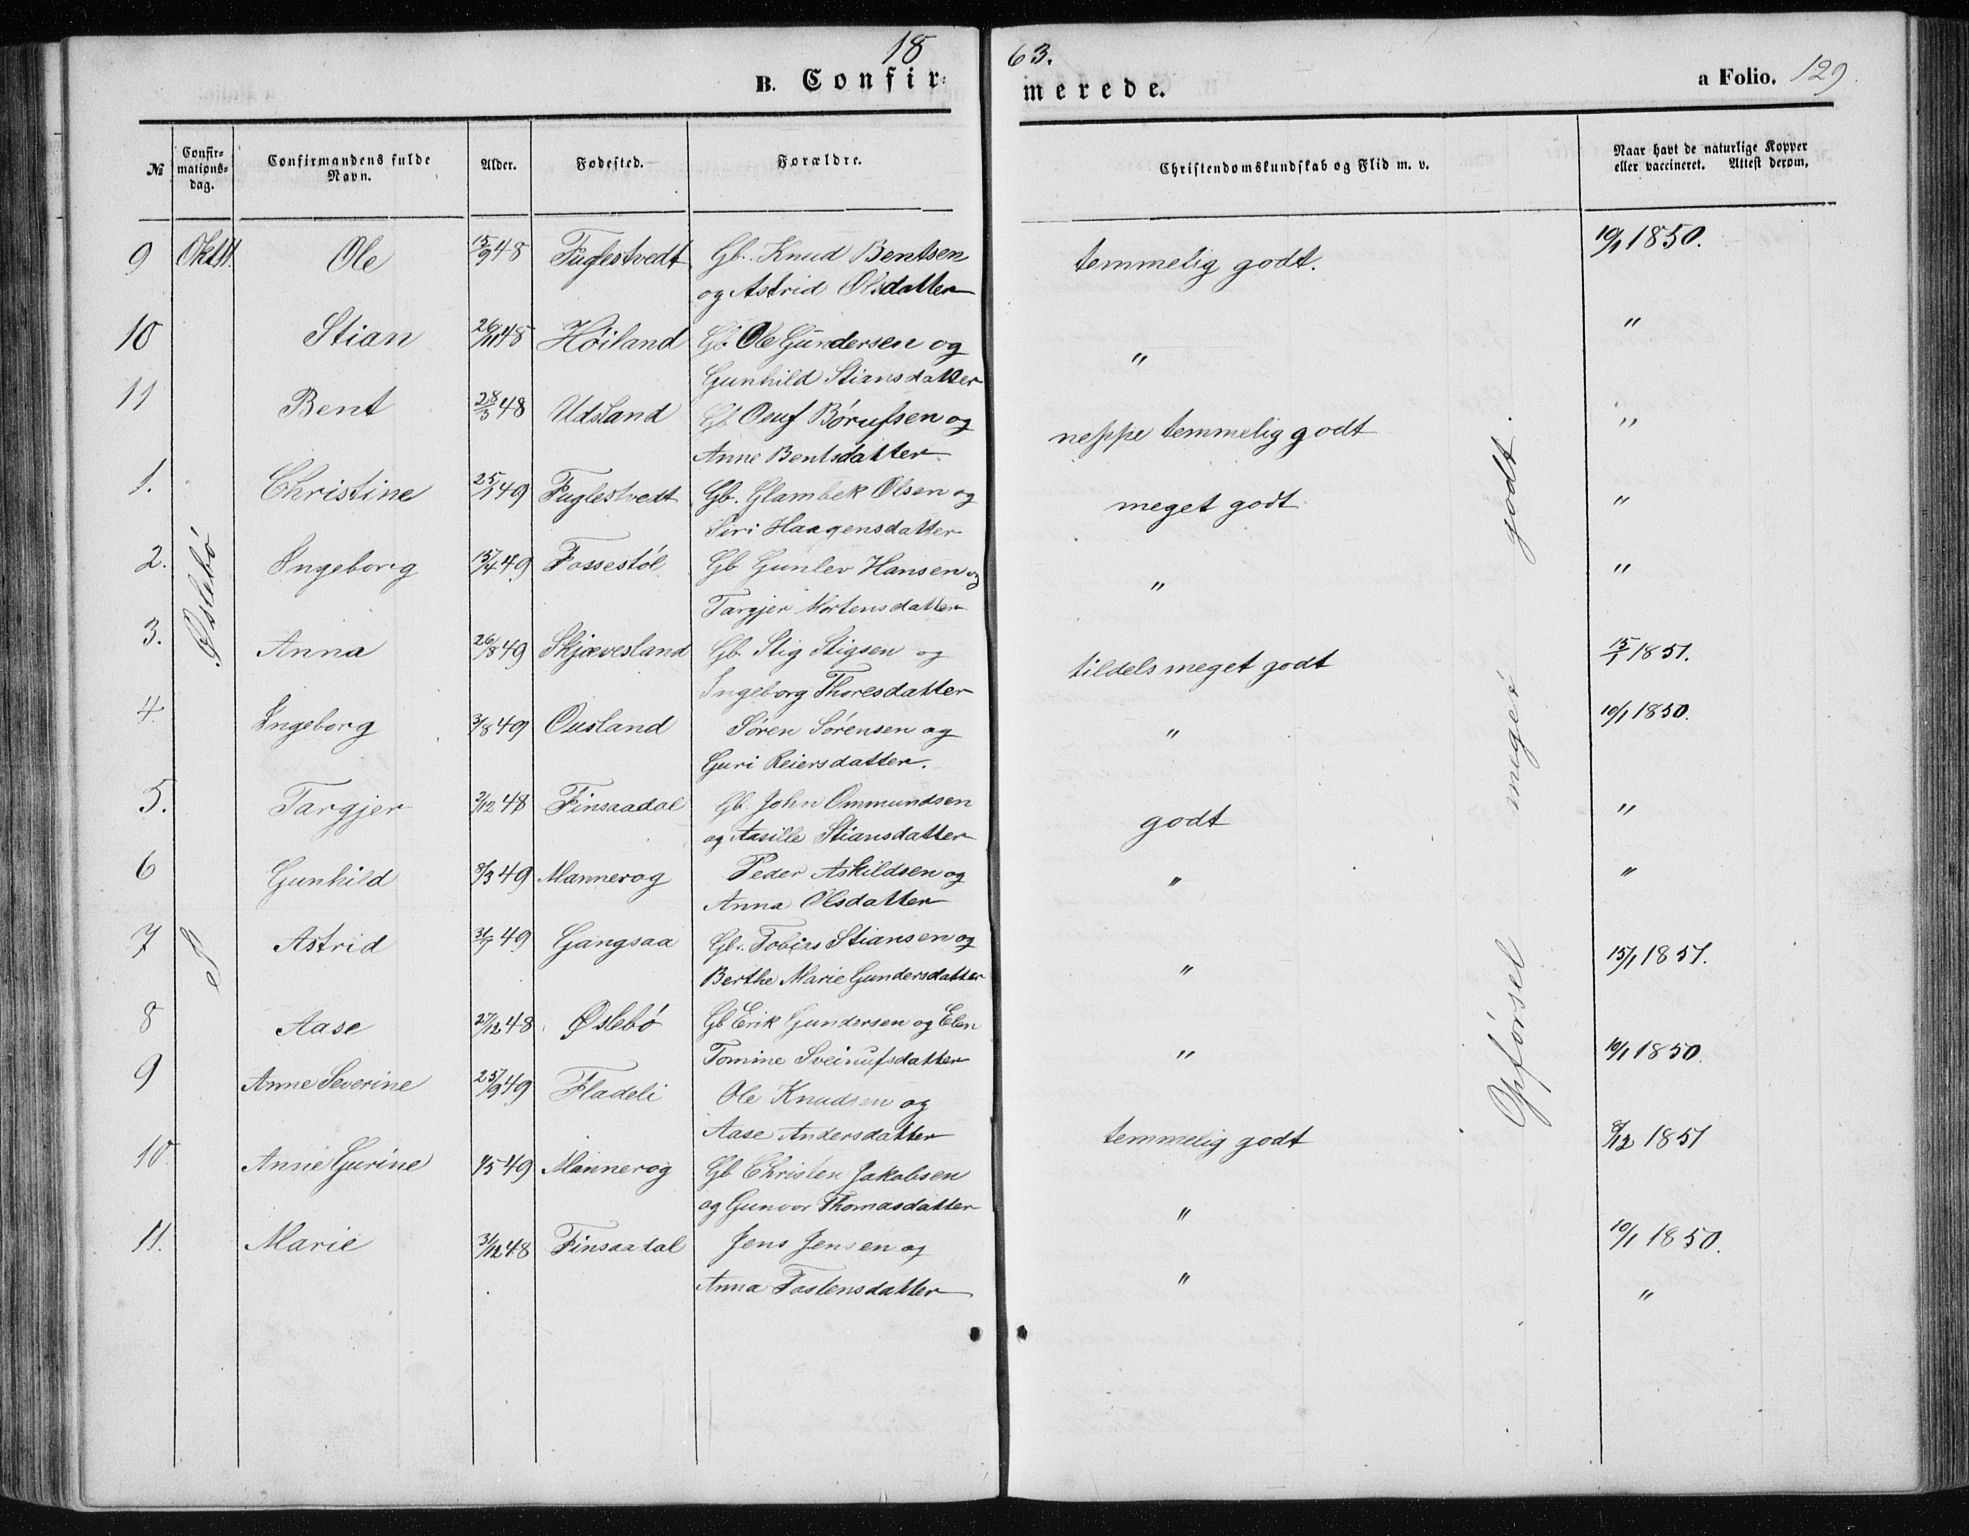 1863.
B. Confirmerede. a Folio. 129.
№ Confirmationsdag. Confirmandens fulde Navn. Alder. Fødested. Forældre. Christendomskundskab og Flid m. v. Naar havt de naturlige Kopper eller vaccineret. Attest derom.
9 Ole 15/9 48 Fuglestvedt Gb. Knud Bentsen temmelig godt. 10/1 1850.
og Astrid Olsdatter
10 Stian 26/11 48 Høiland Gb. Ole Gundersen og " "
Gunhild Stiansdatter
11 Bent 28/3 48 Udsland Gb. Oeuf Børufsen og neppe temmelig godt "
Anne Bentsdatter.
1. Christine 25/1 49 Fuglestvedt Gb. Glambek Olsen og meget godt "
Siri Haagensdatter
2. Ingeborg 15/4 49 Fossestøl Gb Gunlev Hansen og " "
Targjer Mortensdatter
3. Anna 26/8 49 Skjævesland Gb. Stig Stigsen og tildels meget godt 15/1 1851.
Ingeborg Thoresdatter
4. Ingeborg 3/8 49 Ousland Søren Sørensen og " 10/1 1850.
Guri Reiersdatter.
5. Targjer 2/12 48 Finsaadal Gb. John Ommundsen godt "
og Aasille Stiansdatter
6 Gunhild 8/3 49 Mannerog Peder Askildsen og " "
Anna Olsdatter
7 Astrid 31/7 49 Gangsaa Gb. Tobias Stiansen og " 15/1 1851.
Berthe Marie Gundersdatter
8 Aase 27/12 48 Øslebø Gb Erik Gundersen og Elen " 10/1 1850.
Tomine Sveinufsdatter
9 Anne Severine 25/9 49 Fladeli Ole Knudsen og temmelig godt 8/12 1851
Aase Andersdatter
10 Anne Gurine 1/5 49 Mannerog Gb Christen Jakobsen " 10/1 1850.
og Gunvor Thomasdatter
11. Marie 31/12 48 Finsaadal Jens Jensen og " "
Anna Tostensdatter
Øslebø
Opførsel meget godt.